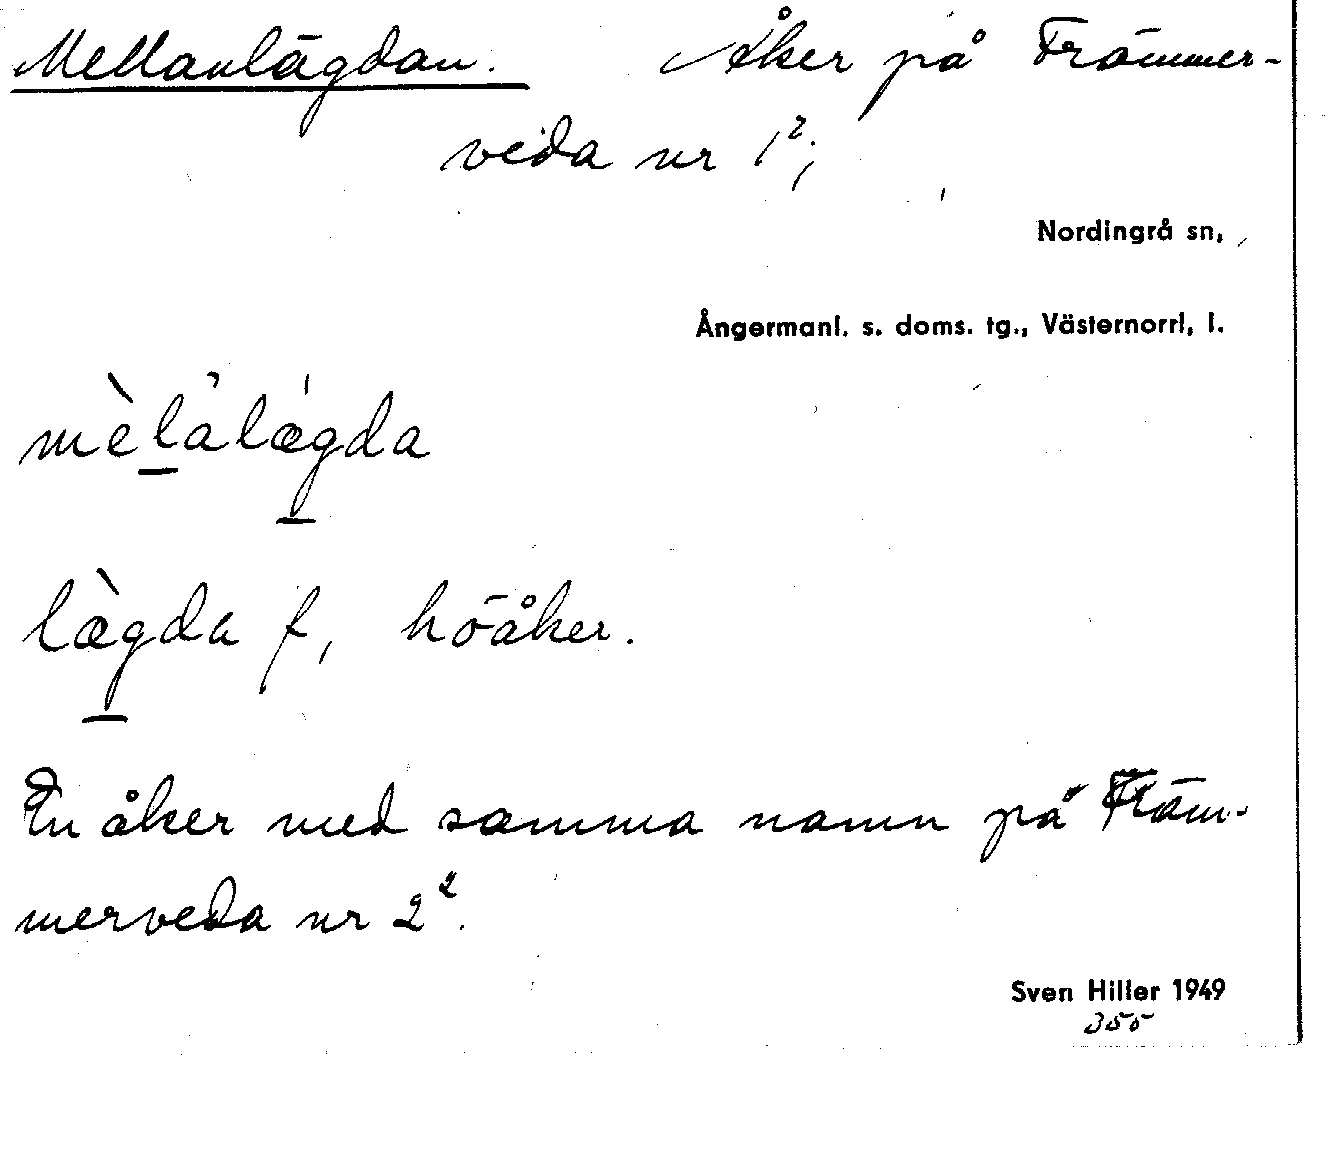 Mellanlägdan. Åker på Främmer-
veda nr 1²;
Nordingrå sn,
Ångermanl. s. doms. tg., Västernorrl. l.
mèlalægda
lægda f, höåker.
En åker med samma namn på Främ-
merveda nr 2².
Sven Hiller 1949
355